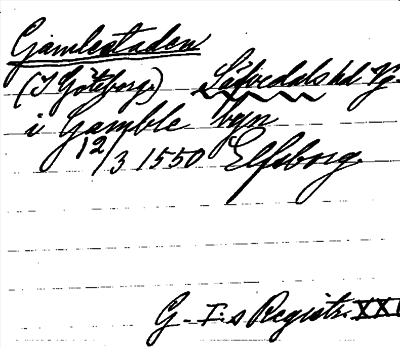 Gamlestaden
(I Göteborg.) Sävedals hd Vg.
i Gamble byn
12/3 1550 Elfsborg.
G. I:s Registr. XXI